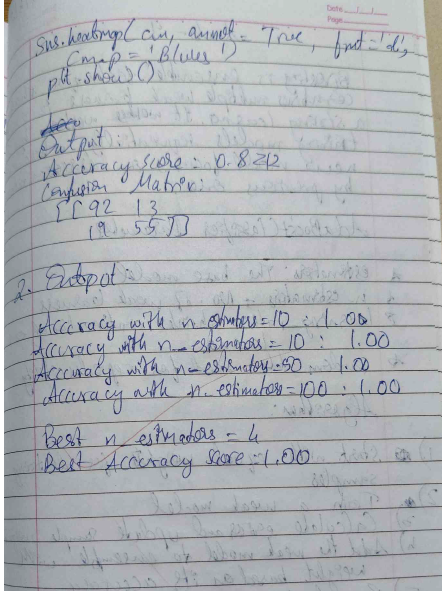 Date
Page
Sns.heatmap(cm, annot = True, fmt='d',
cmap = 'Blues')
plt.show()()
Acc
Output:
Accuracy Score: 0.8212
Confusion Matrix:
[[92 13
[19 55]]
2. Output
Acccracy with n_estimators=10 : 1.00
Accuracy with n_estimators = 10 : 1.00
Accuracy with n_estimators=50 : 1.00
Accuracy with n_estimators=100 : 1.00
Best n_estimators = 4
Best Accuracy Score=1.00